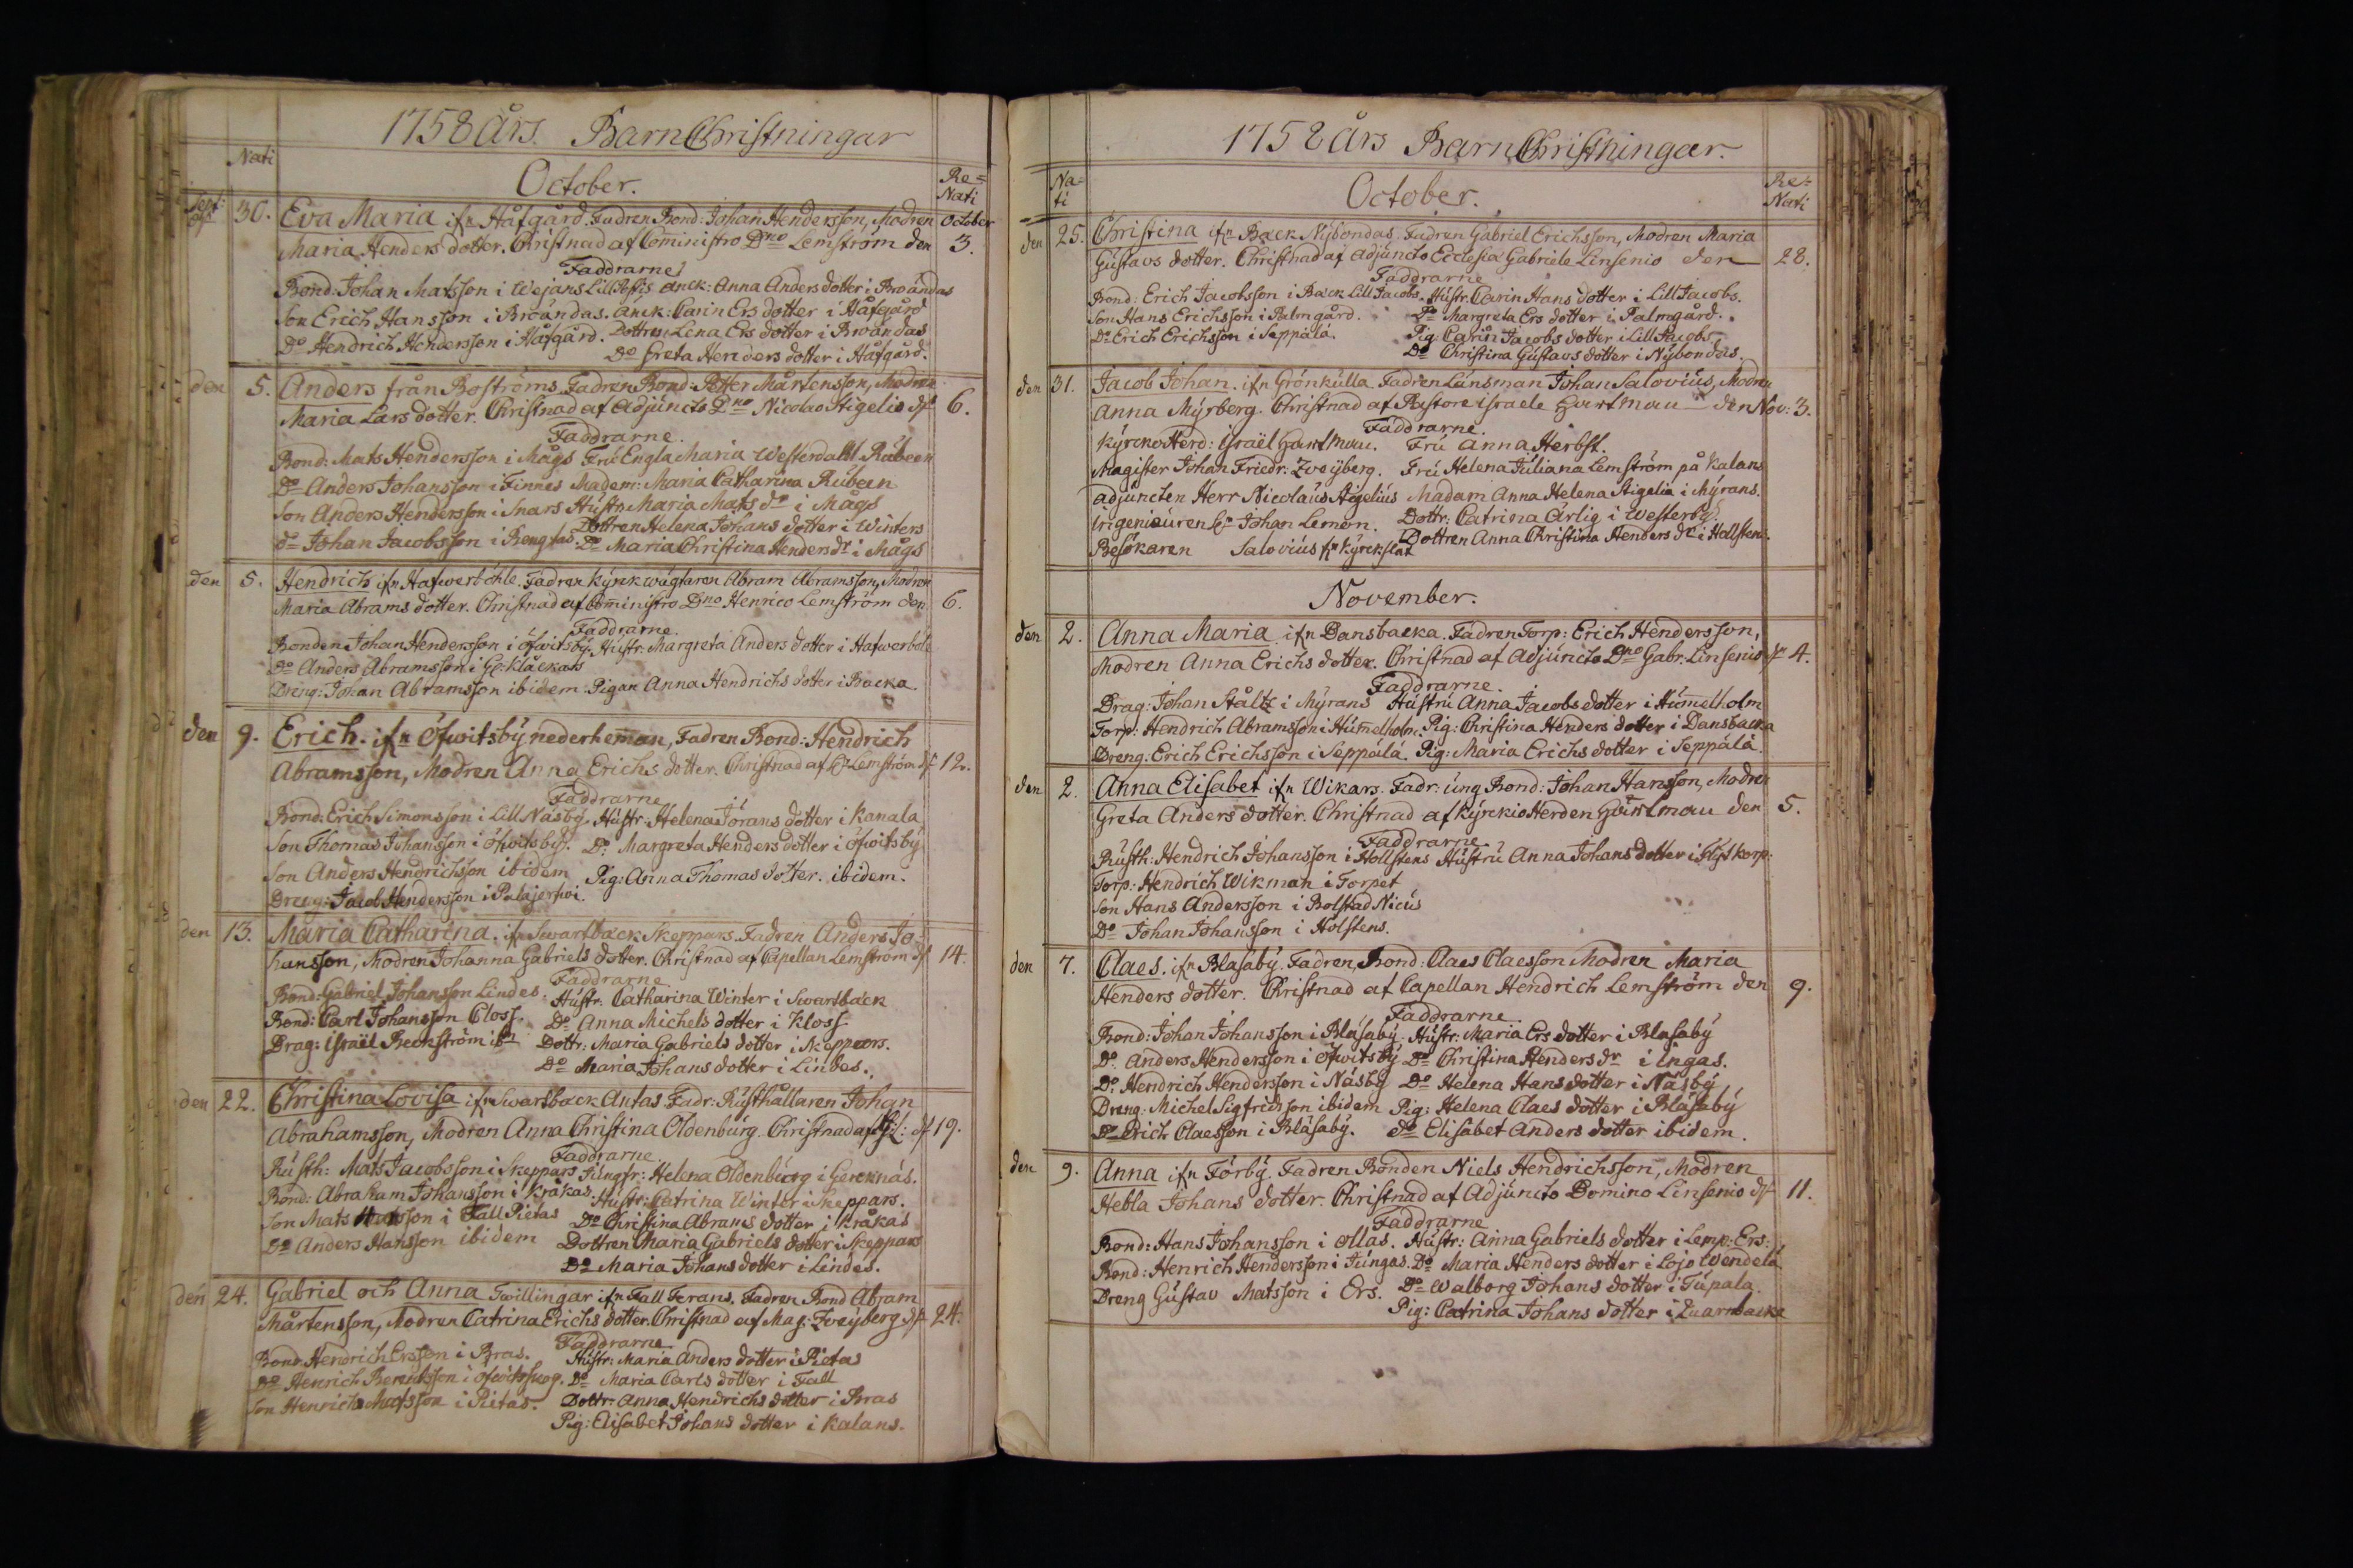 1758 Års. BarnChristningar
Nati
October.
Re=
Nati
Sept:
30. Eva Maria ifn Håfgård. Fadren Bond: Johan Hendersson, Modren October
Maria Henders dotter. Christnad af Cominístro Dno Lemström den 3.
Faddrarne
Bond: Johan Matsson i Wejans Lill anck: Anna Anders dotter i Broändas
Son Erich Hansson i Broändas. Anck: Carin Ers dotter i Håfgård
Do Hendrich Hendersson i Håfgård. Dottren Lena Ers dotter i Broändas
Do Greta Henders dotter i Håfgård.
den 5. Anders från Boströms. Fadren Bond: Petter Mårtensson, Modren
Maria Lars dotter. Christnad af Adjuncto Dno Nicolao Stigelio df 6.
Faddrarne.
Bond: Mats Hendersson i Mågs Fru Engla Maria Westerdahl Rubeen
Do Anders Johansson i Finnes Madem: Maria Catharina Rubeen
Son Anders Hendersson i Snars Hustr: Maria Mats dr i Mågs
Dottren Helena Johans dotter i Winters
do Johan Jacobsson i Bengtas. Do Maria Christina Henders dr i Mågs
den 5. Hendrich ifn Hafwerböhle. Fadren Kyrckwägtaren Abram Abramsson, Modren
Maria Abrams dotter. Christnad af Cominístro Dno Henrico Lemström den 6.
Faddrarne.
Bonden Johan Hendersson i öfwitsby. Hustr: Margreta Anders dotter i Hafwerböle
Do Anders Abramsson i Gr: Klåckars
Dreng: Johan Abramsson ibidem. Pigan Anna Hendrichs dotter i Backa.
den 9. Erich. ifn Öfwitsby nederheman, Fadren Bond: Hendrich
Abramsson, Modren Anna Erichs dotter. Christnad af Cp Lemström df 12.
Faddrarne
Bond: Erich Simonsson i Lill Näsby. Hustr: Helena Jörans dotter i Kanala
Son Thomas Johansson i öfwitsby. Do Margreta Henders dotter i öfwitsby
Son Anders Hendrichson ibidem Pig: Anna Thomas dotter. ibidem.
Dreng: Jacob Hendersson i Palajerfwi.
den 13. Maria Catharina. ifn Swartback Skeppars. Fadren Anders Jo-
hansson, Modren Johanna Gabriels dotter. Christnad af Capellan Lemström df 14.
Faddrarne
Bond: Gabriel Johansson Lindes. Hustr: Catharina Winter i Swartback
Bond: Carl Johansson Closs. Do Anna Michels dotter i Kloss
Drag: Israël Beckström ibm Dottr: Maria Gabriels dotter i Skeppars.
Do Maria Johans dotter i Lindes.
den 22. Christina Lovisa ifn Swartback Antas. Fadr: Rusthållaren Johan
Abrahamsson, Modren Anna Christina Oldenburg. Christnad af df 19.
Faddrarne
Rusth: Mats Jacobsson i Skeppars Jungfr: Helena Oldenburg i Gerknäs.
Bond: Abraham Johansson i Kråkas. Hustr: Catrina Winter i Skeppars.
Son Mats Hansson i Fall Pietas Do Christina Abrams dotter i Kråkas
Do Anders Hansson ibidem Dottren Maria Gabriels dotter i Skeppars
Do Maria Johans dotter i Lindes.
den 24. Gabriel och Anna Twillingar ifn Fall Ferans. Fadren Bond Abram
Mårtensson, Modren Catrina Erichs dotter. Christnad af Mag: Zweyberg df 24.
Faddrarne
Bond: Hendrich Ersson i Bras. Hustr: Maria Anders dotter i Pietas
Do Henrich Berentsson i öfwitskog. Do Maria Carls dotter i Fall
Son Henrich Matsson i Pietas. Dottr: Anna Hendrichs dotter i Bras
Pig: Elisabet Johans dotter i Kalans.
1758 Års BarnChristningar.
Na-
ti
October.
Re=
Nati
den 25. Christina ifn Back Nybondas. Fadren Gabriel Erichsson, Modren Maria
Gustavs dotter. Christnad af Adjuncto Ecclesiæ Gabriele Linsenio den 28.
Faddrarne
Bond: Erich Jacobsson i Back Lill Jacobs. Hustr: Carin Hans dotter i Lill Jacobs.
Son Hans Erichsson i Palmgård. Do Margreta Ers dotter i Palmgård.
Do Erich Erichsson i Seppälä. Pig: Carin Jacobs dotter i Lill Jacobs
Do Christina Gustavs dotter i Nybondas.
den 31. Jacob Johan. ifn Grönkulla. Fadren Länsman Johan Salovius, Modren
Anna Myrberg. Christnad af Pastore Israele Hartman den Nov: 3.
Faddrarne.
KyrckioHerd: Israël Hartman. Fru Anna Herbst.
Magister Johan Friedr: Zweyberg. Fru Helena Juliana Lemström på Kalans
Adjuncten Herr Nicolaus Stigelius Madam Anna Helena Stigelia i Myrans.
ingenieuren Johan Lemon. Dottr: Catrina Ärlig i Westerby.
Besökaren Salovius fn Kyrckslät Dottren Anna Christina Henders dr i Hallstens.
November.
den 2. Anna Maria ifn Dansbacka. Fadren Torp: Erich Hendersson,
Modren Anna Erichs dotter. Christnad af Adjuncto Dno Gabr. Linsenio dn 4.
Faddrarne.
Drag: Johan Stålt i Myrans Hustru Anna Jacobs dotter i Humelholm
Torp: Hendrich Abramsson i Humelholm. Pig: Christina Henders dotter i Dansbacka
Dreng: Erich Erichsson i Seppälä. Pig: Maria Erichs dotter i Seppälä.
den 2. Anna Elisabet ifn Wikars. Fadr: ung Bond: Johan Hansson, Modren
Greta Anders dotter. Christnad af KyrckioHerden Hartman den 5.
Faddrarne
Rusth: Hendrich Johansson i Hollstens Hustru Anna Johans dotter i Flytkorp:
Torp: Hendrich Wikman i Torpet
Son Hans Andersson i Bolstad Nicus
Do Johan Johansson i Holstens.
den 7. Claes. ifn Blasaby. Fadren Bond: Claes Claesson Modren Maria
Henders dotter. Christnad af Capellan Hendrich Lemström den 9.
Faddrarne
Bond: Johan Johansson i Bläsaby. Hustr: Maria Ers dotter i Blasaby
Do Anders Hendersson i öfwitsby Do Christina Henders dr i Ingas.
Do Hendrich Hendersson i Näsby Do Helena Hans dotter i Näsby
Dreng: Michel Sigfridsson ibidem Pig: Helena Claes dotter i Bläsaby
Do Erich Claesson i Bläsaby. do Elisabet Anders dotter ibidem.
den 9. Anna ifn Torby. Fadren Bonden Niels Hendrichsson, Modren
Hebla Johans dotter. Christnad af Adjuncto Domino Linsenio df 11.
Faddrarne
Bond: Hans Johansson i Ollas. Hustr: Anna Gabriels dotter i Lemp: Ers:
Bond: Henrich Hendersson i Jungas. Do Maria Henders dotter i Lojo Wendelä
Dreng Gustav Matsson i Ers. Do Walborg Johans dotter i Tupala.
Pig: Catrina Johans dotter i Quarnbacka